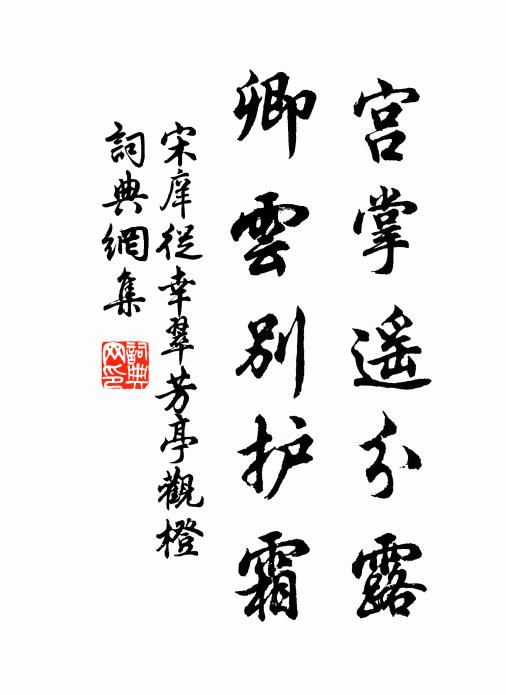 宫掌遥分露
卿雲别护霜
宋庠從幸翠芳亭觀橙
詞典網集
詞典網印